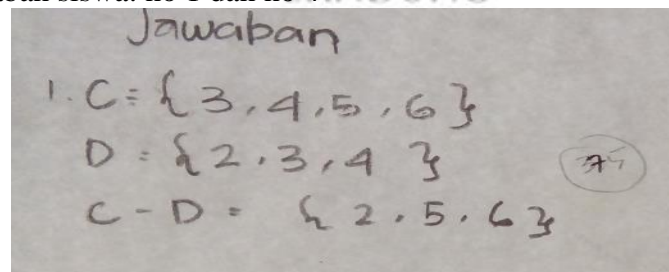 Jawaban
1. C = { 3, 4, 5, 6 }
D = { 2, 3, 4 }
C - D = { 2, 5, 6 }